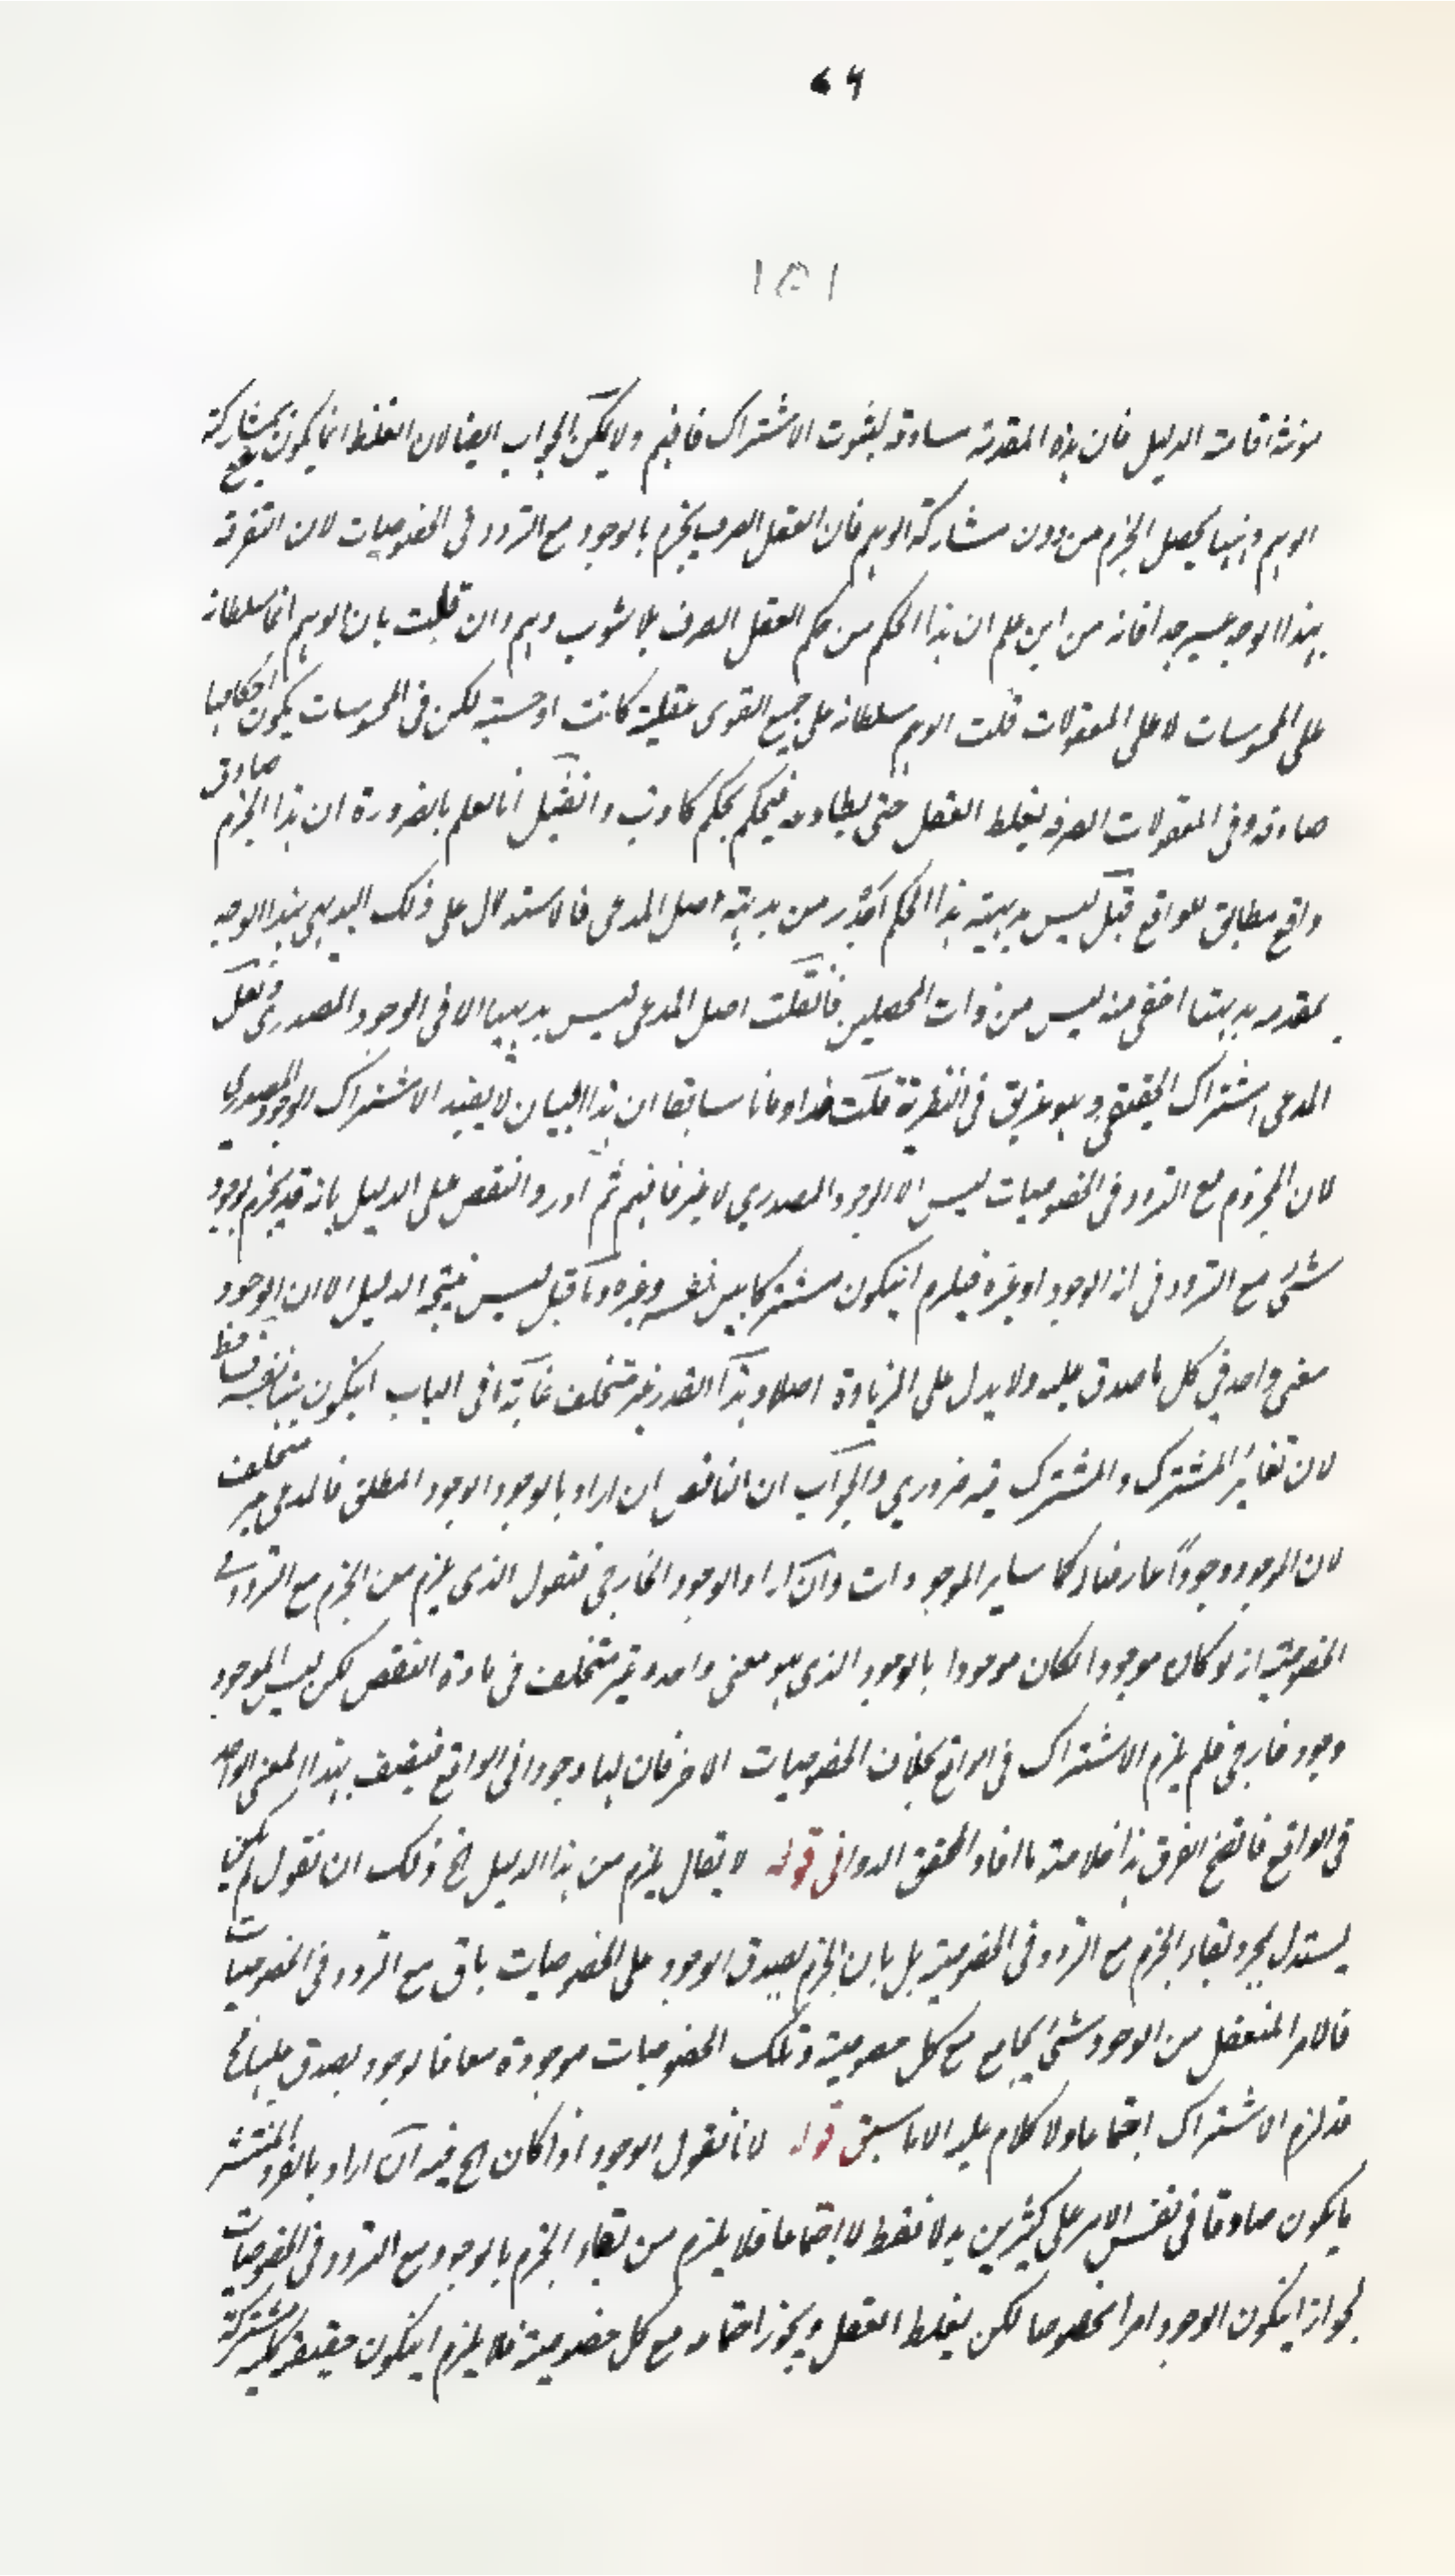 ٦٩
١٥١
مونة اقامة الدليل فان هذه المقدمة مساوقة لثبوت الاشتراك فافهم ولا يمكن الجواب ايضا لان الغلط انما يكون بمشاركة
الوهم وههنا يحصل الجزم من دون مشاركة الوهم فان العقل الصرف يجزم بالوجود مع التردد فى الخصوصيات لان التفرقة
بهذا الوجه عسير جدا فانه من اين علم ان هذا الحكم من حكم العقل الصرف بلا شوب وهم وان قلت بان الوهم انما سلطانه
على المحسوسات لا على المعقولات قلت الوهم سلطانه على جميع القوى عقلية كانت او حسية لكن فى المحسوسات يكون احكامها
صادقة وفى المعقولات الصرفة يغلط العقل حتى يطاوعه فيحكم بحكم كاذب وان قيل انا نعلم بالضرورة ان هذا الجزم صادق
واقع مطابق للواقع قيل ليس بديهية هذا الحكم اكثر من بديهية اصل المدعى فالاستدلال على ذلك البديهى بهذا الوجه
بمقدمه بديهتها اخفى منه ليس من ذات المحصلين فان قلت اصل المدعى ليس بديهيا الا فى الوجود المصدرى ولعل
المدعى اشتراك الحقيقى وهو غريق فى النظرية قلت قد اومانا سابقا ان هذا البيان لا يفيد الاشتراك الوجود المصدري
لان المجزوم مع التردد فى الخصوصيات ليس الا الوجود المصدري لا غير فافهم ثم اورد النقض على الدليل بانه قد يجزم بوجود
شئ مع التردد فى انه الوجود او غيره فيلزم ان يكون مشتركا بين نفسه وغيره وما قيل ليس نتيجة الدليل الا ان الوجود
معنى واحد فى كل ما صدق عليه ولا يدل على الزيادة اصلا وهذا القدر غير متخلف غاية ما فى الباب ان يكون بيننا نفسه فساقط
لان تغاير المشترك والمشترك فيه ضروري والجواب ان الناقض ان اراد بالوجود الوجود المطلق فالمدعى غير متخلف
لان الوجود وجوداً عارضا له كما ساير الموجودات وان اراد الوجود الخارجى فنقول الذى يلزم من الجزم مع التردد فى
الخصوصية انه لو كان موجودا لكان موجودا بالوجود الذى هو معنى واحد وغير متخلف فى مادة النقض لكن ليس للوجود
وجود خارجى فلم يلزم الاشتراك فى الواقع بخلاف الخصوصيات الاخر فان لها وجودا فى الواقع فيتصف بهذا المعنى الواحد
فى الواقع فاتضح الفرق هذا خلاصة ما افاد المحقق الدوانى قوله لا يقال يلزم من هذا الدليل الخ ذلك ان تقول لم لا يكفى
يستدل بمجرد بقاء الجزم مع التردد فى الخصوصية بل بان الجزم بصدق الوجود على الخصوصيات باق مع التردد فى الخصوصيات
فالامر المنعقل من الوجود شئ يجامع مع كل خصوصية وتلك الخصوصيات موجودة معا فالوجود يصدق عليها فح
قد لزم الاشتراك اجتماعا ولا كلام عليه الا ما سبق قوله لانا نقول الوجود اذا كان الخ فيه ان اراد بالفرد المنتشر
ما يكون صادقا فى نفس الامر على كثيرين بدلا فقط لا اجتماعا فلا يلزم من بقاء الجزم بالوجود مع التردد فى الخصوصيات
لجواز ان يكون الوجود امرا مخصوصا لكن يغلط العقل ويجوز اجتماعه مع كل خصوصية فلا يلزم ان يكون حقيقة كلية مشتركة